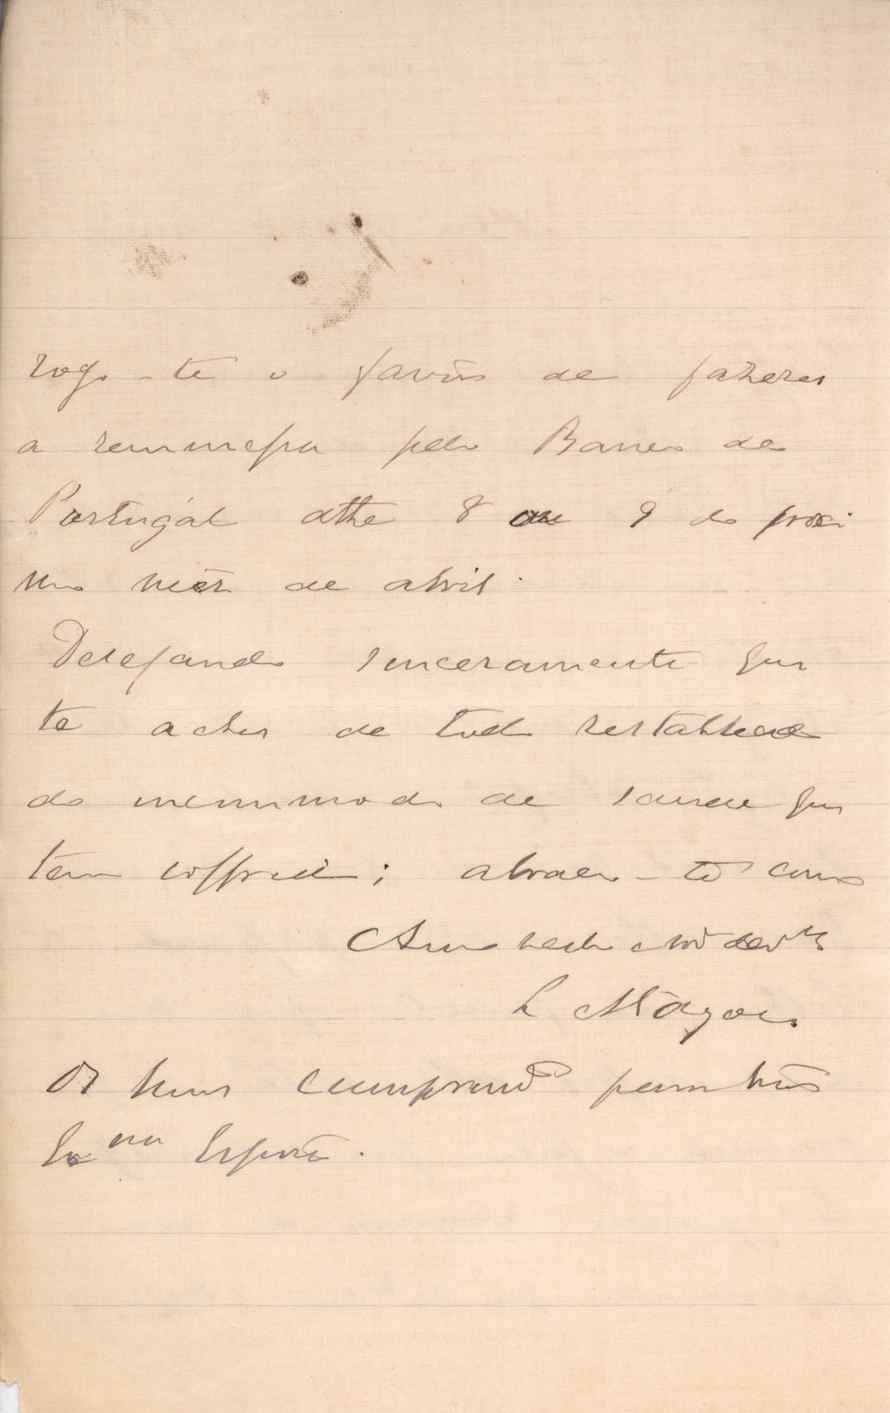 rogo-te o favôr de fazeres
a remmessa pelo Banco de
Portugal athe 8 ou 9 do proxi
mo mêz de abril.
Desejando sinceramente que
te aches de todo restablecido
do incommodo de saude que
tem soffrido; abraço-te como
Am.o
L Mayor
Os meus cumprim.tos para tua
Ex.ma Esposa.